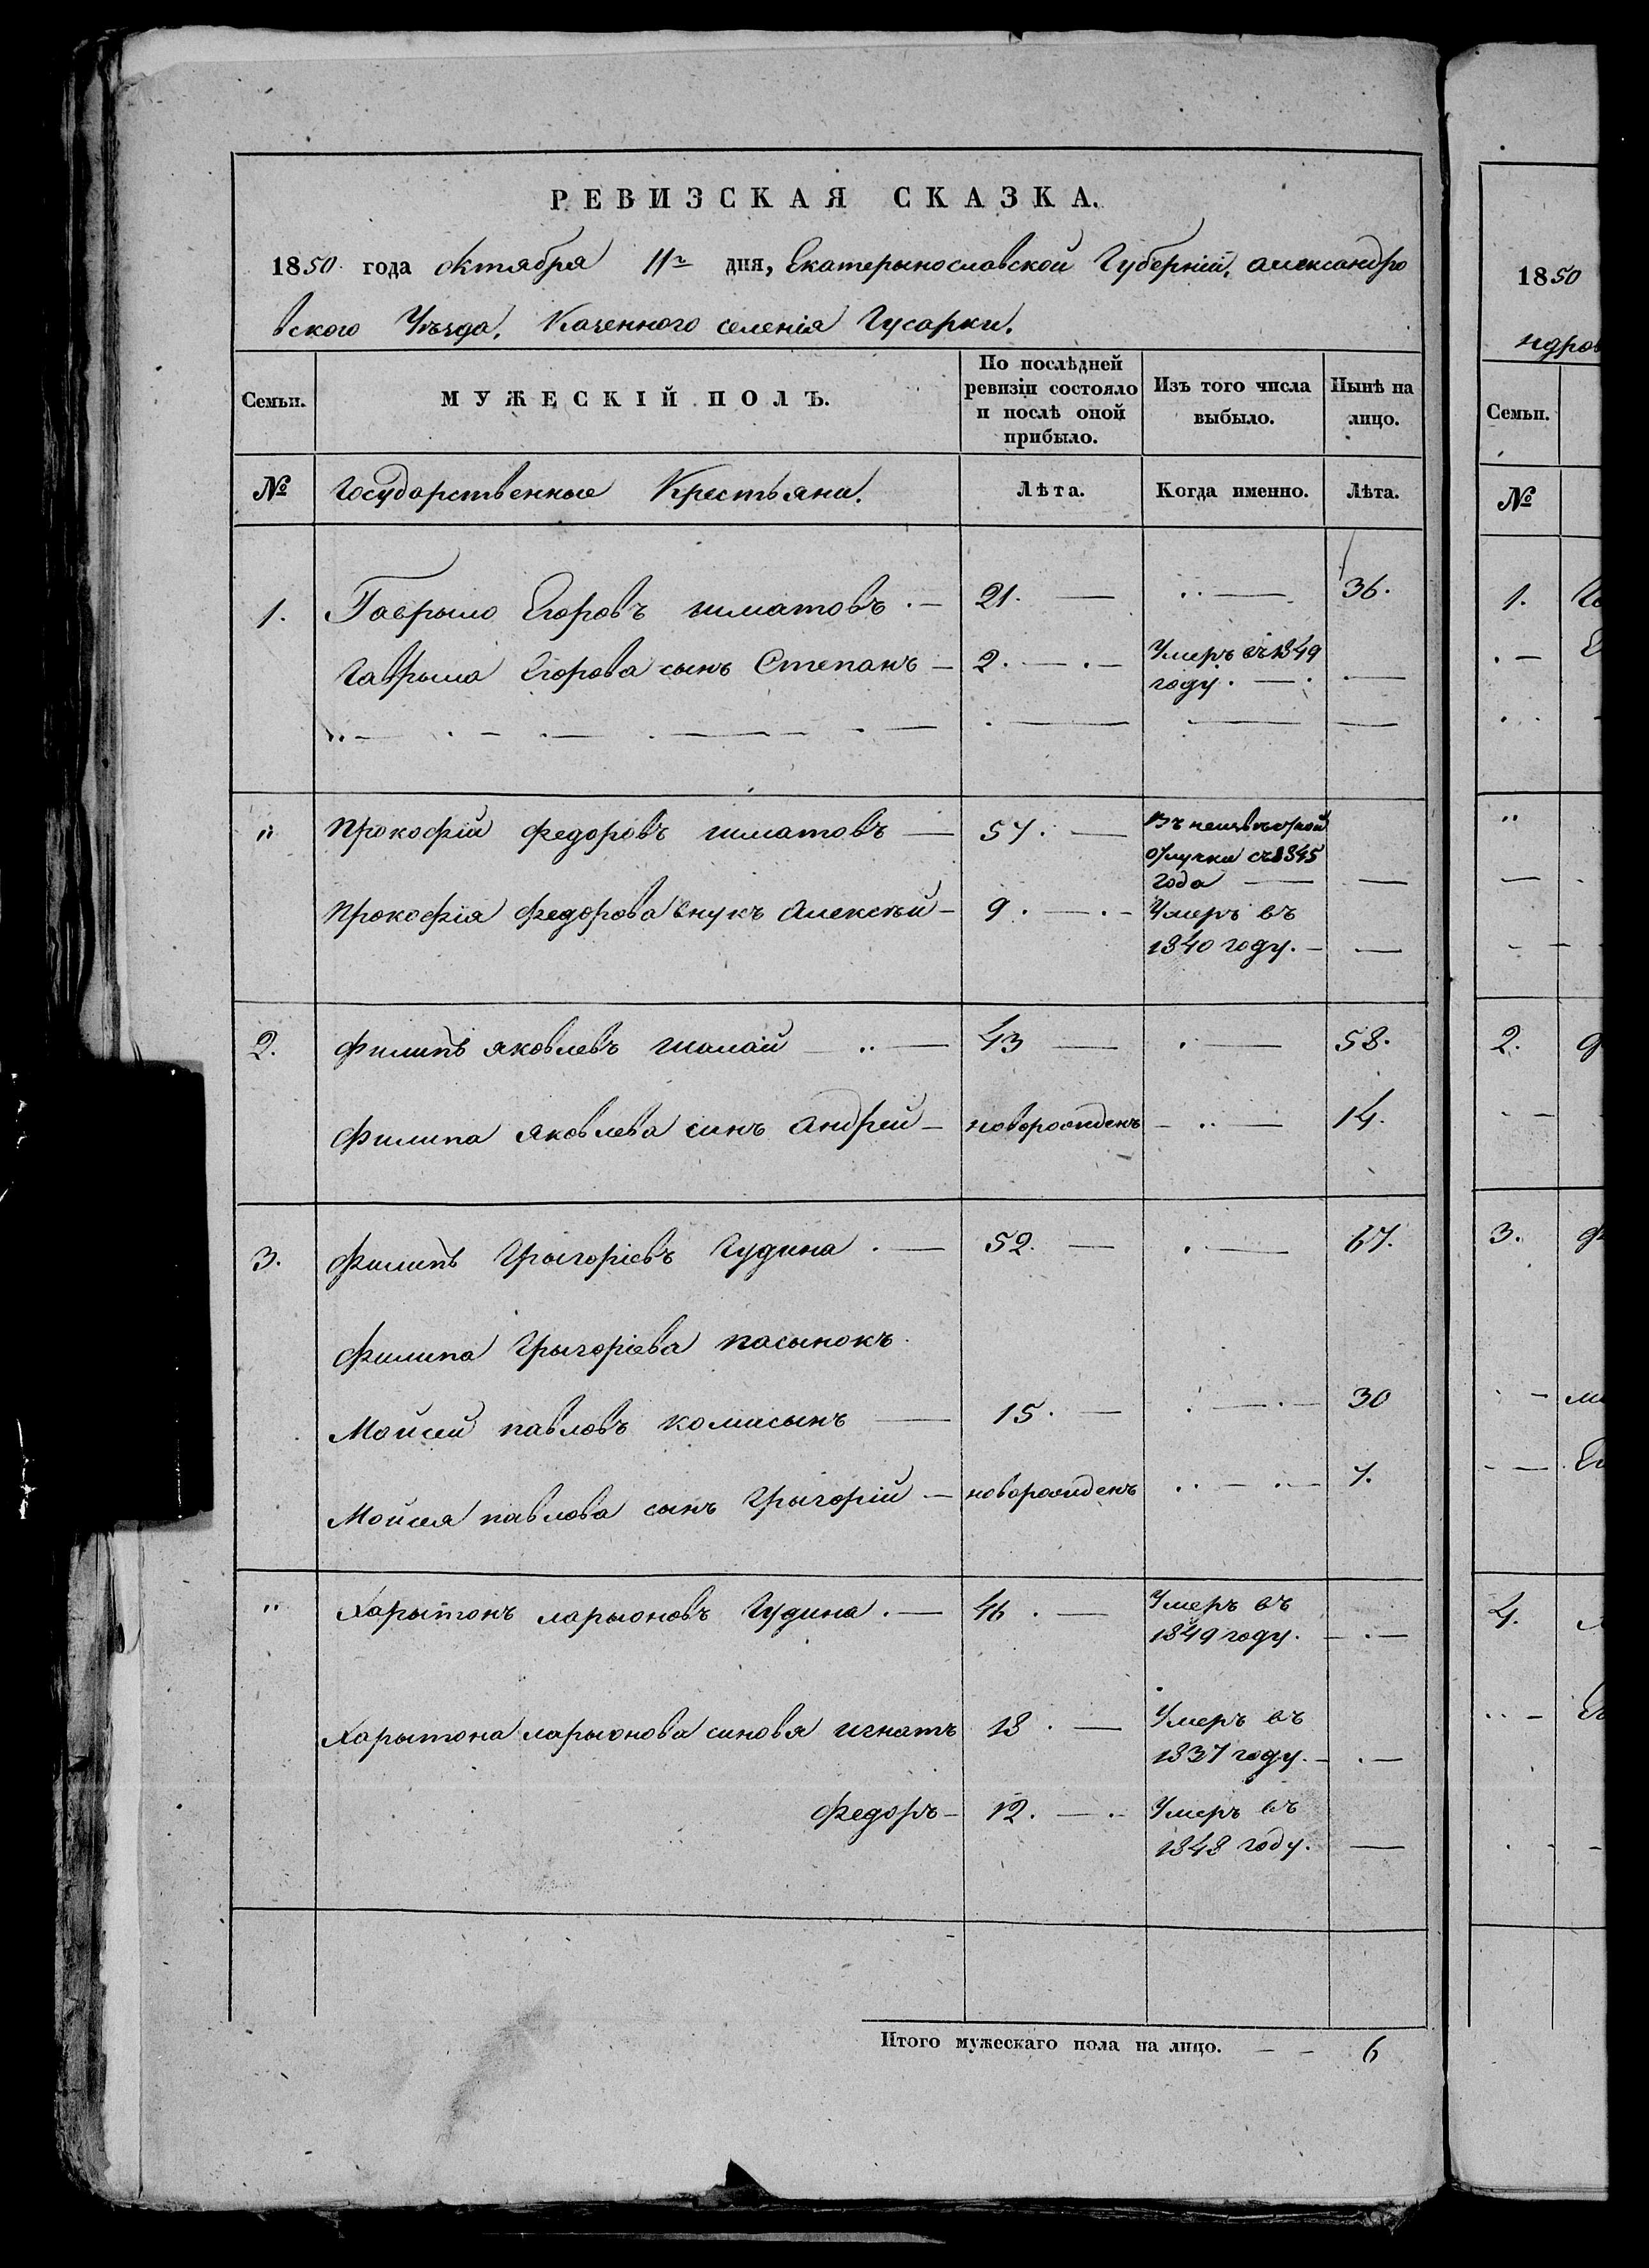 РЕВИЗСКАЯ СКАЗКА.
1850 года октября 11го дня, Екатерынославской Губерніи, александро
вского Уѣзда, Казенного селенія Гусарки.
Семьи. МУЖЕСКІЙ ПОЛЪ. По послѣдней ревизіи состояло и послѣ оной прибыло. Изъ того числа выбыло. Нынѣ на лицо.
№ Государственные Крестьяни. Лѣта. Когда именно. Лѣта.
1. Гаврыло Егоровъ шматовъ 21. 36.
Гаврыла Егорова сынъ Степанъ 2. Умеръ въ 1849
году.
" Прокофій федоровъ шматовъ 57. Въ неизвѣстной
отлучки съ 1845
года
Прокофія федорова внукъ алексѣй 9. Умеръ въ
1840 году.
2. филипъ яковлевъ шалай 43 58.
филипа яковлева синъ андрей новорожденъ 14.
3. филипъ Грыгоріевъ Гудина 52. 67.
филипа Грыгоріева пасынокъ
Мойсей павловъ комисынъ 15. 30
Мойсея павлова сынъ Грыгорій новорожденъ 7.
" Харытонъ ларыоновъ Гудина 46. Умеръ въ
1849 году.
Харытона ларыонова синовя игнатъ 18. Умеръ въ
1837 году.
федоръ 12. Умеръ въ
1848 году.
Итого мужескаго пола на лицо. 6
1850
ндров
Семьи.
№
1.
"
2.
3.
4.